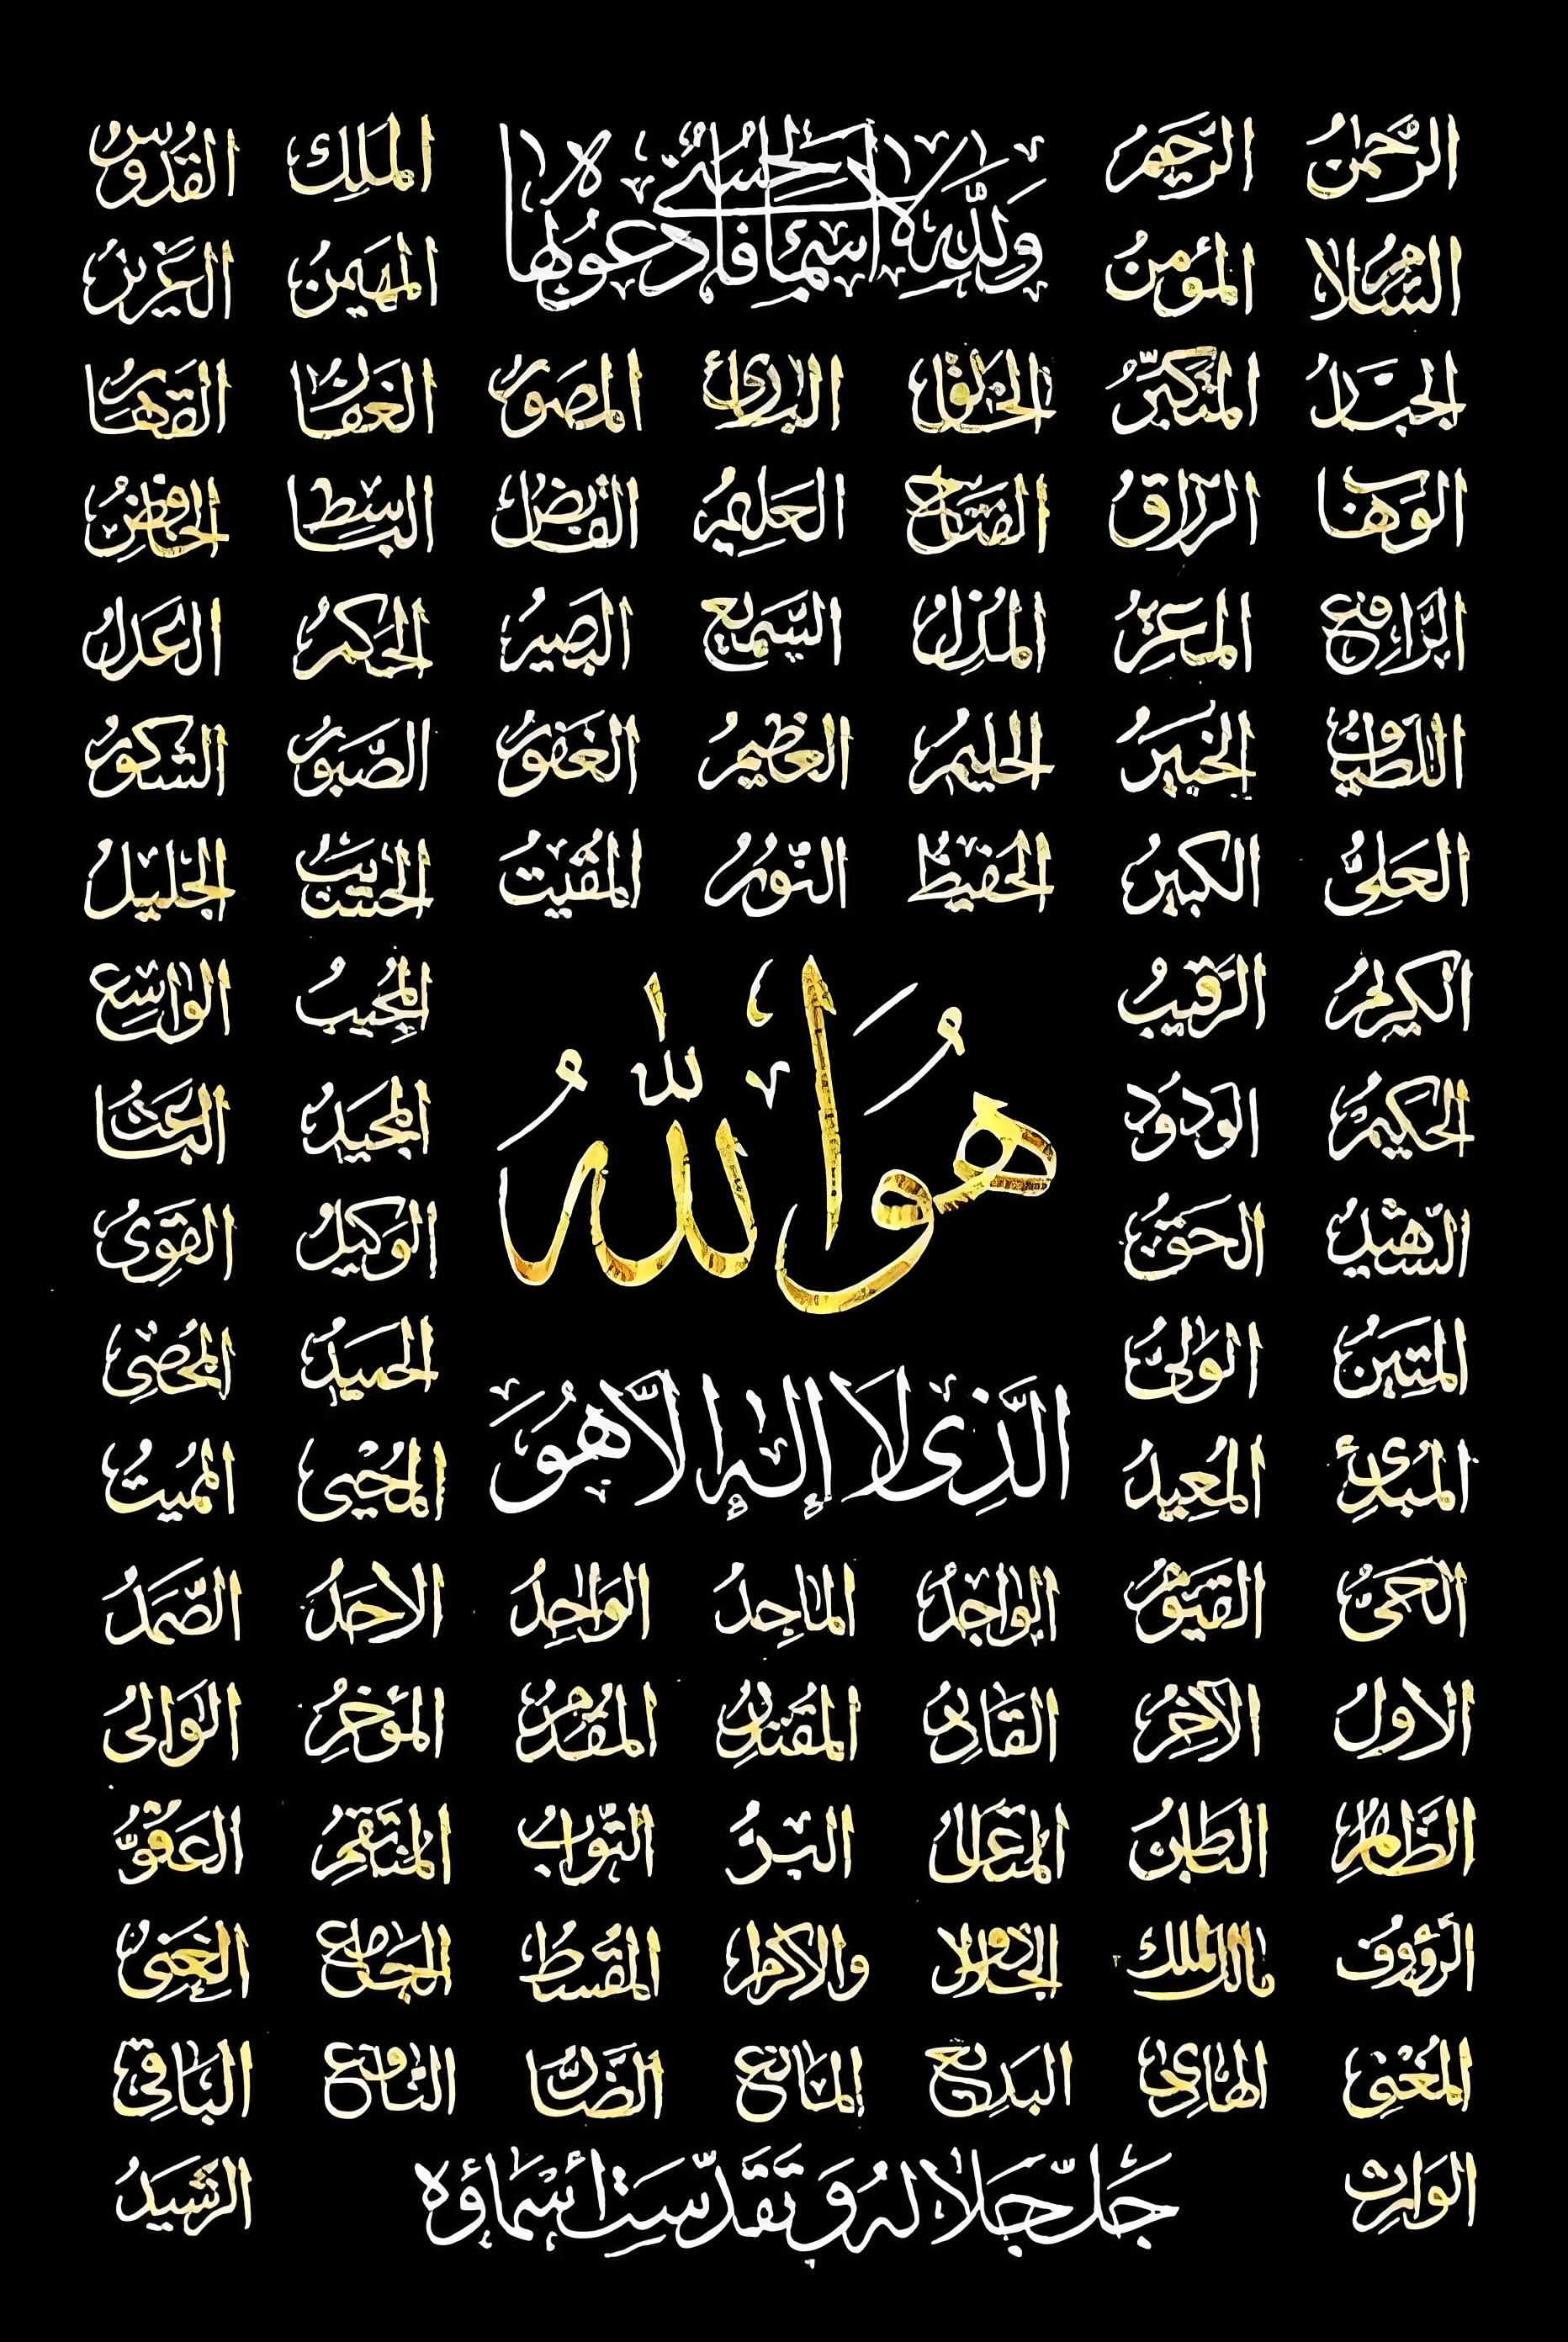 الرَّحْمٰنُ الرَّحِيمُ وَلِلّٰهِ الْاَسْمَاءُ الْحُسْنٰى فَادْعُوهُ بِهَا الْمَلِكُ الْقُدُّوسُ
السَّلَامُ الْمُؤْمِنُ الْمُهَيْمِنُ الْعَزِيزُ
الْجَبَّارُ الْمُتَكَبِّرُ الْخَالِقُ الْبَارِئُ الْمُصَوِّرُ الْغَفَّارُ الْقَهَّارُ
الْوَهَّابُ الرَّزَّاقُ الْفَتَّاحُ الْعَلِيمُ الْقَابِضُ الْبَاسِطُ الْخَافِضُ
الرَّافِعُ الْمُعِزُّ الْمُذِلُّ السَّمِيعُ الْبَصِيرُ الْحَكَمُ الْعَدْلُ
اللَّطِيفُ الْخَبِيرُ الْحَلِيمُ الْعَظِيمُ الْغَفُورُ الصَّبُورُ الشَّكُورُ
الْعَلِيُّ الْكَبِيرُ الْحَفِيظُ النُّورُ الْمُقِيتُ الْحَسِيبُ الْجَلِيلُ
الْكَرِيمُ الرَّقِيبُ الْمُجِيبُ الْوَاسِعُ
الْحَكِيمُ الْوَدُودُ هُوَ اللّٰهُ الْمَجِيدُ الْبَاعِثُ
الشَّهِيدُ الْحَقُّ الْوَكِيلُ الْقَوِىُّ
الْمَتِينُ الْوَلِىُّ الْحَمِيدُ الْمُحْصِى
الْمُبْدِئُ الْمُعِيدُ الَّذِى لَا إِلٰهَ إِلَّا هُوَ الْمُحْيِى الْمُمِيتُ
الْحَىُّ الْقَيُّومُ الْوَاجِدُ الْمَاجِدُ الْوَاحِدُ الْاَحَدُ الصَّمَدُ
الْاَوَّلُ الْآخِرُ الْقَادِرُ الْمُقْتَدِرُ الْمُقَدِّمُ الْمُؤَخِّرُ الْوَالِى
الظَّاهِرُ الْبَاطِنُ الْمُتَعَالُ الْبَرُّ التَّوَّابُ الْمُنْتَقِمُ الْعَفُوُّ
الرَّؤُوفُ مَالِكُ الْمُلْكِ ذُو الْجَلَالِ وَالْاِكْرَامِ الْمُقْسِطُ الْجَامِعُ الْغَنِىُّ
الْمُغْنِى الْهَادِى الْبَدِيعُ الْمَانِعُ الضَّارُّ النَّافِعُ الْبَاقِى
الْوَارِثُ جَلَّ جَلَالُهُ وَتَقَدَّسَتْ أَسْمَاؤُهُ الرَّشِيدُ